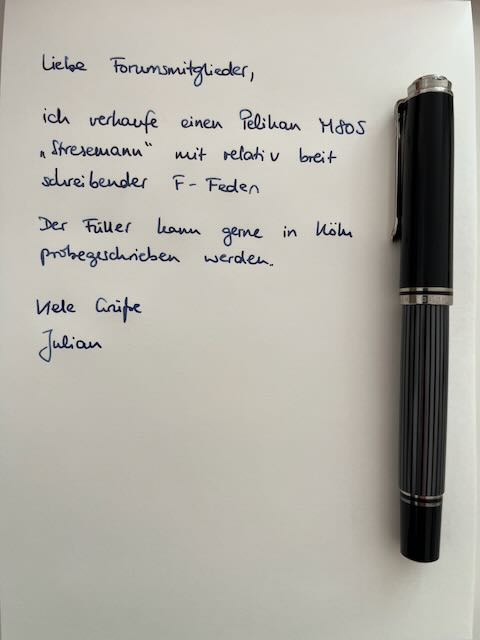 Liebe Forumsmitglieder,
ich verkaufe einen Pelikan M805
„Stresemann“ mit relativ breit
schreibender F-Feder
Der Füller kann gerne in Köln
probegeschrieben werden.
Viele Grüße
Julian